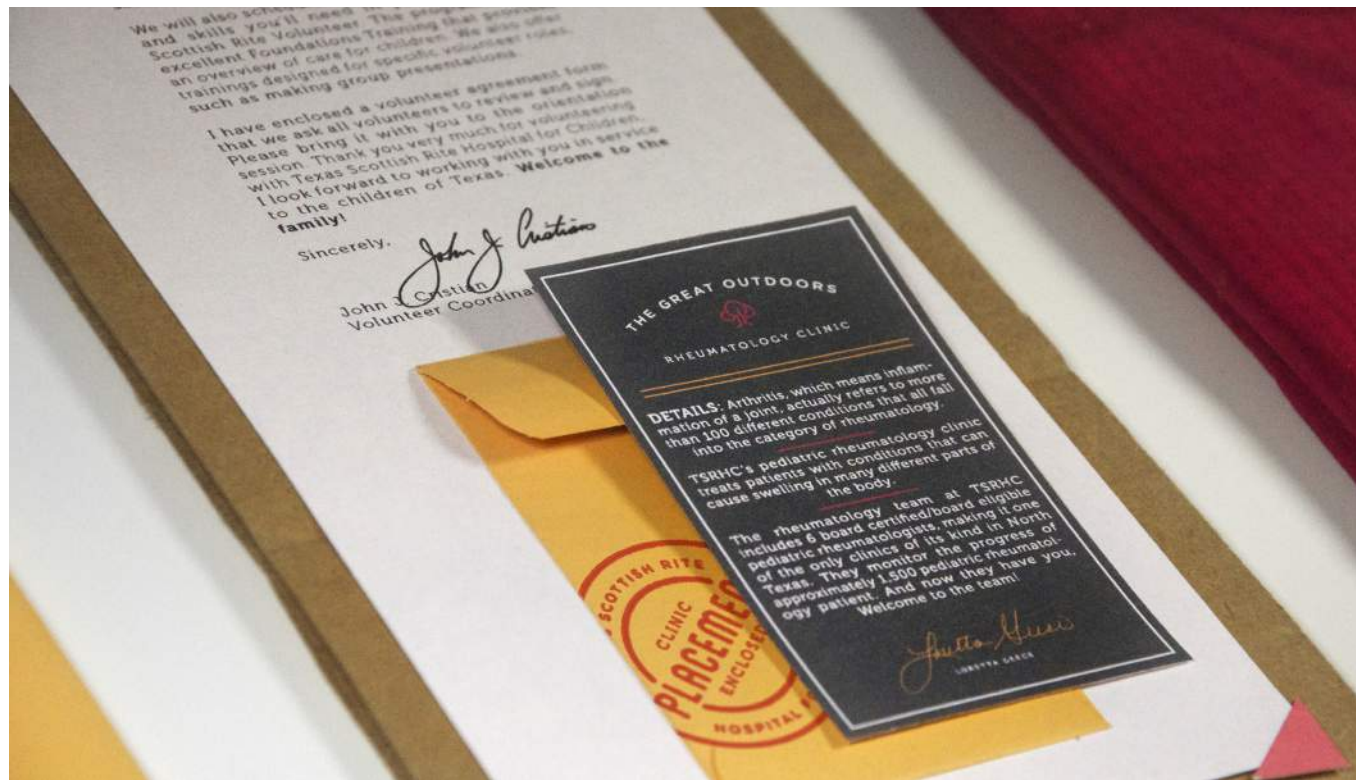 We will also sched
and skills you'll need
Scottish Rite Volunteer. The prog
excellent Foundations Training that provid
an overview of care for children. We also offer
trainings designed for specific volunteer roles,
such as making group presentations.
I have enclosed a volunteer agreement form
that we ask all volunteers to review and sign.
Please bring it with you to the orientation
session. Thank you very much for volunteering
with Texas Scottish Rite Hospital for Children.
I look forward to working with you in service
to the children of Texas. Welcome to the
family!
Sincerely,
John J. Cristian
John J. Cristian
Volunteer Coordinat
THE GREAT OUTDOORS
RHEUMATOLOGY CLINIC
DETAILS: Arthritis, which means inflam-
mation of a joint, actually refers to more
than 100 different conditions that all fall
into the category of rheumatology.
TSRHC's pediatric rheumatology clinic
treats patients with conditions that can
cause swelling in many different parts of
the body.
The rheumatology team at TSRHC
includes 6 board certified/board eligible
pediatric rheumatologists, making it one
of the only clinics of its kind in North
Texas. They monitor the progress of
approximately 1,500 pediatric rheumatol-
ogy patient. And now they have you.
Welcome to the team!
SCOTTISH RITE
CLINIC
PLACEMEN
ENCLOSE
HOSPITAL